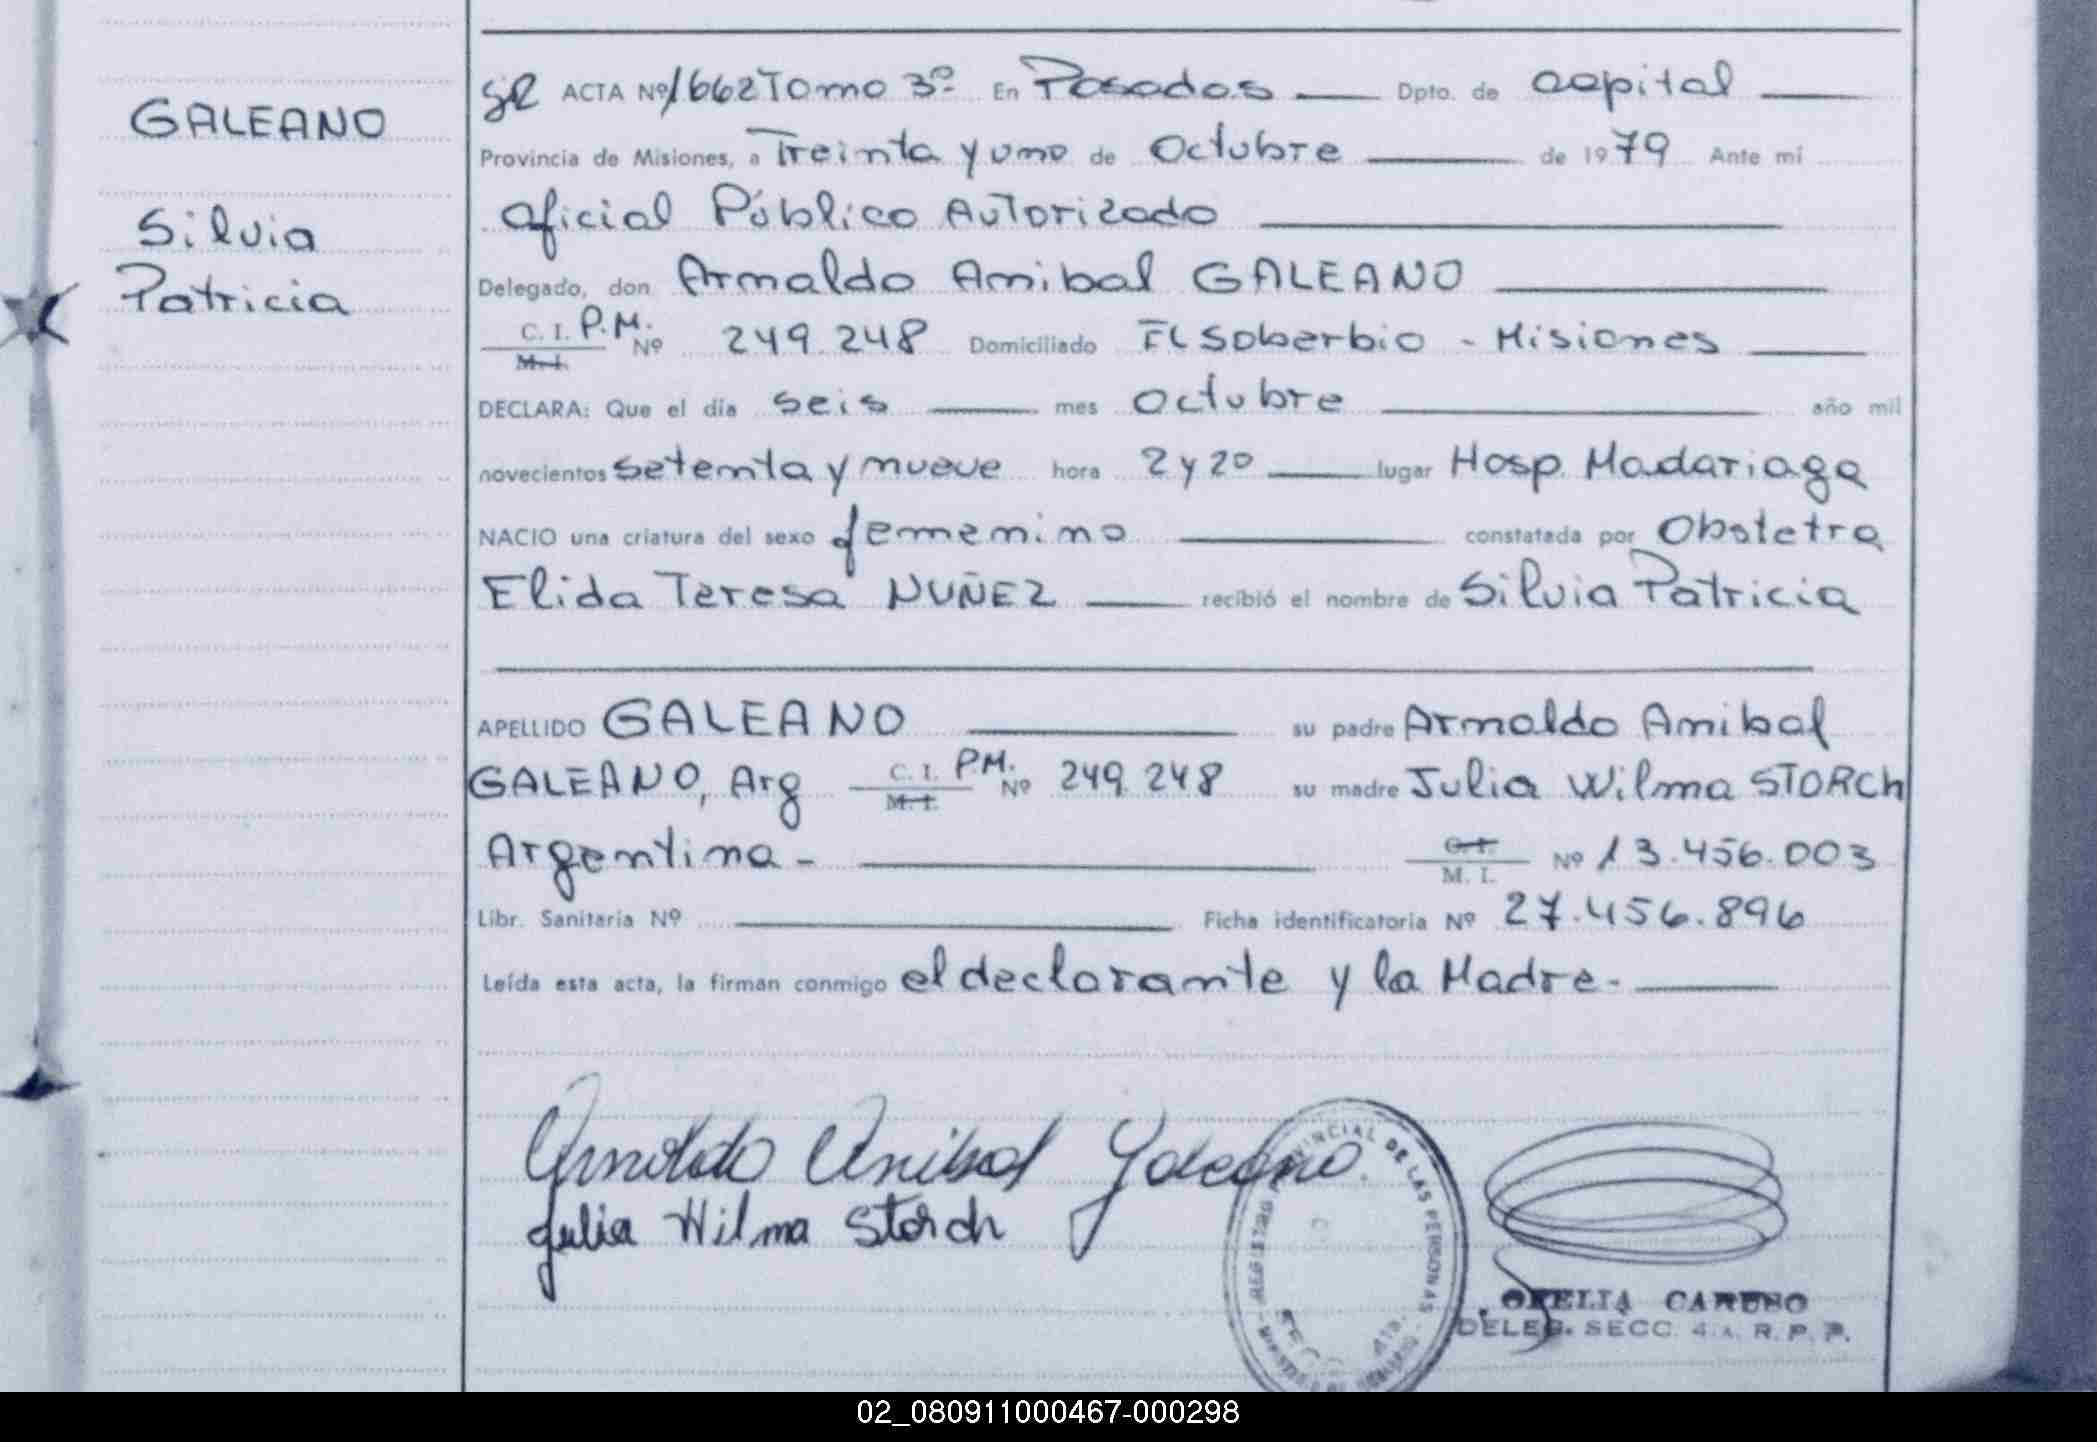 GALEANO
Silvia
Patricia
SR ACTA Nº 1662 Tomo 3º En Posadas Dpto. de capital
Provincia de Misiones, a Treinta y uno de Octubre de 1979 Ante mí
Oficial Público Autorizado
Delegado, don Arnaldo Anibal GALEANO
C. I. P.M.
M. I. Nº 249.248 Domiciliado El Soberbio - Misiones
DECLARA: Que el día seis mes octubre año mil
novecientos setenta y nueve hora 2 y 20 lugar Hosp. Madariaga
NACIO una criatura del sexo femenino constatada por Obstetra
Elida Teresa NUÑEZ recibió el nombre de Silvia Patricia
APELLIDO GALEANO su padre Arnaldo Anibal
GALEANO, Arg C. I. P.M. M. I. Nº 249.248 su madre Julia Wilma STORCH
Argentina - C. I. M. I. Nº 13.456.003
Libr. Sanitaria Nº Ficha identificatoria Nº 27.456.896
Leída esta acta, la firman conmigo el declarante y la Madre.-
Arnoldo Anibal Galeano
Julia Wilma Storch
REGISTRO PROVINCIAL DE LAS PERSONAS
OFELIA CARUSO
DELEG. SECC. 4a. R. P. P.
02_080911000467-000298